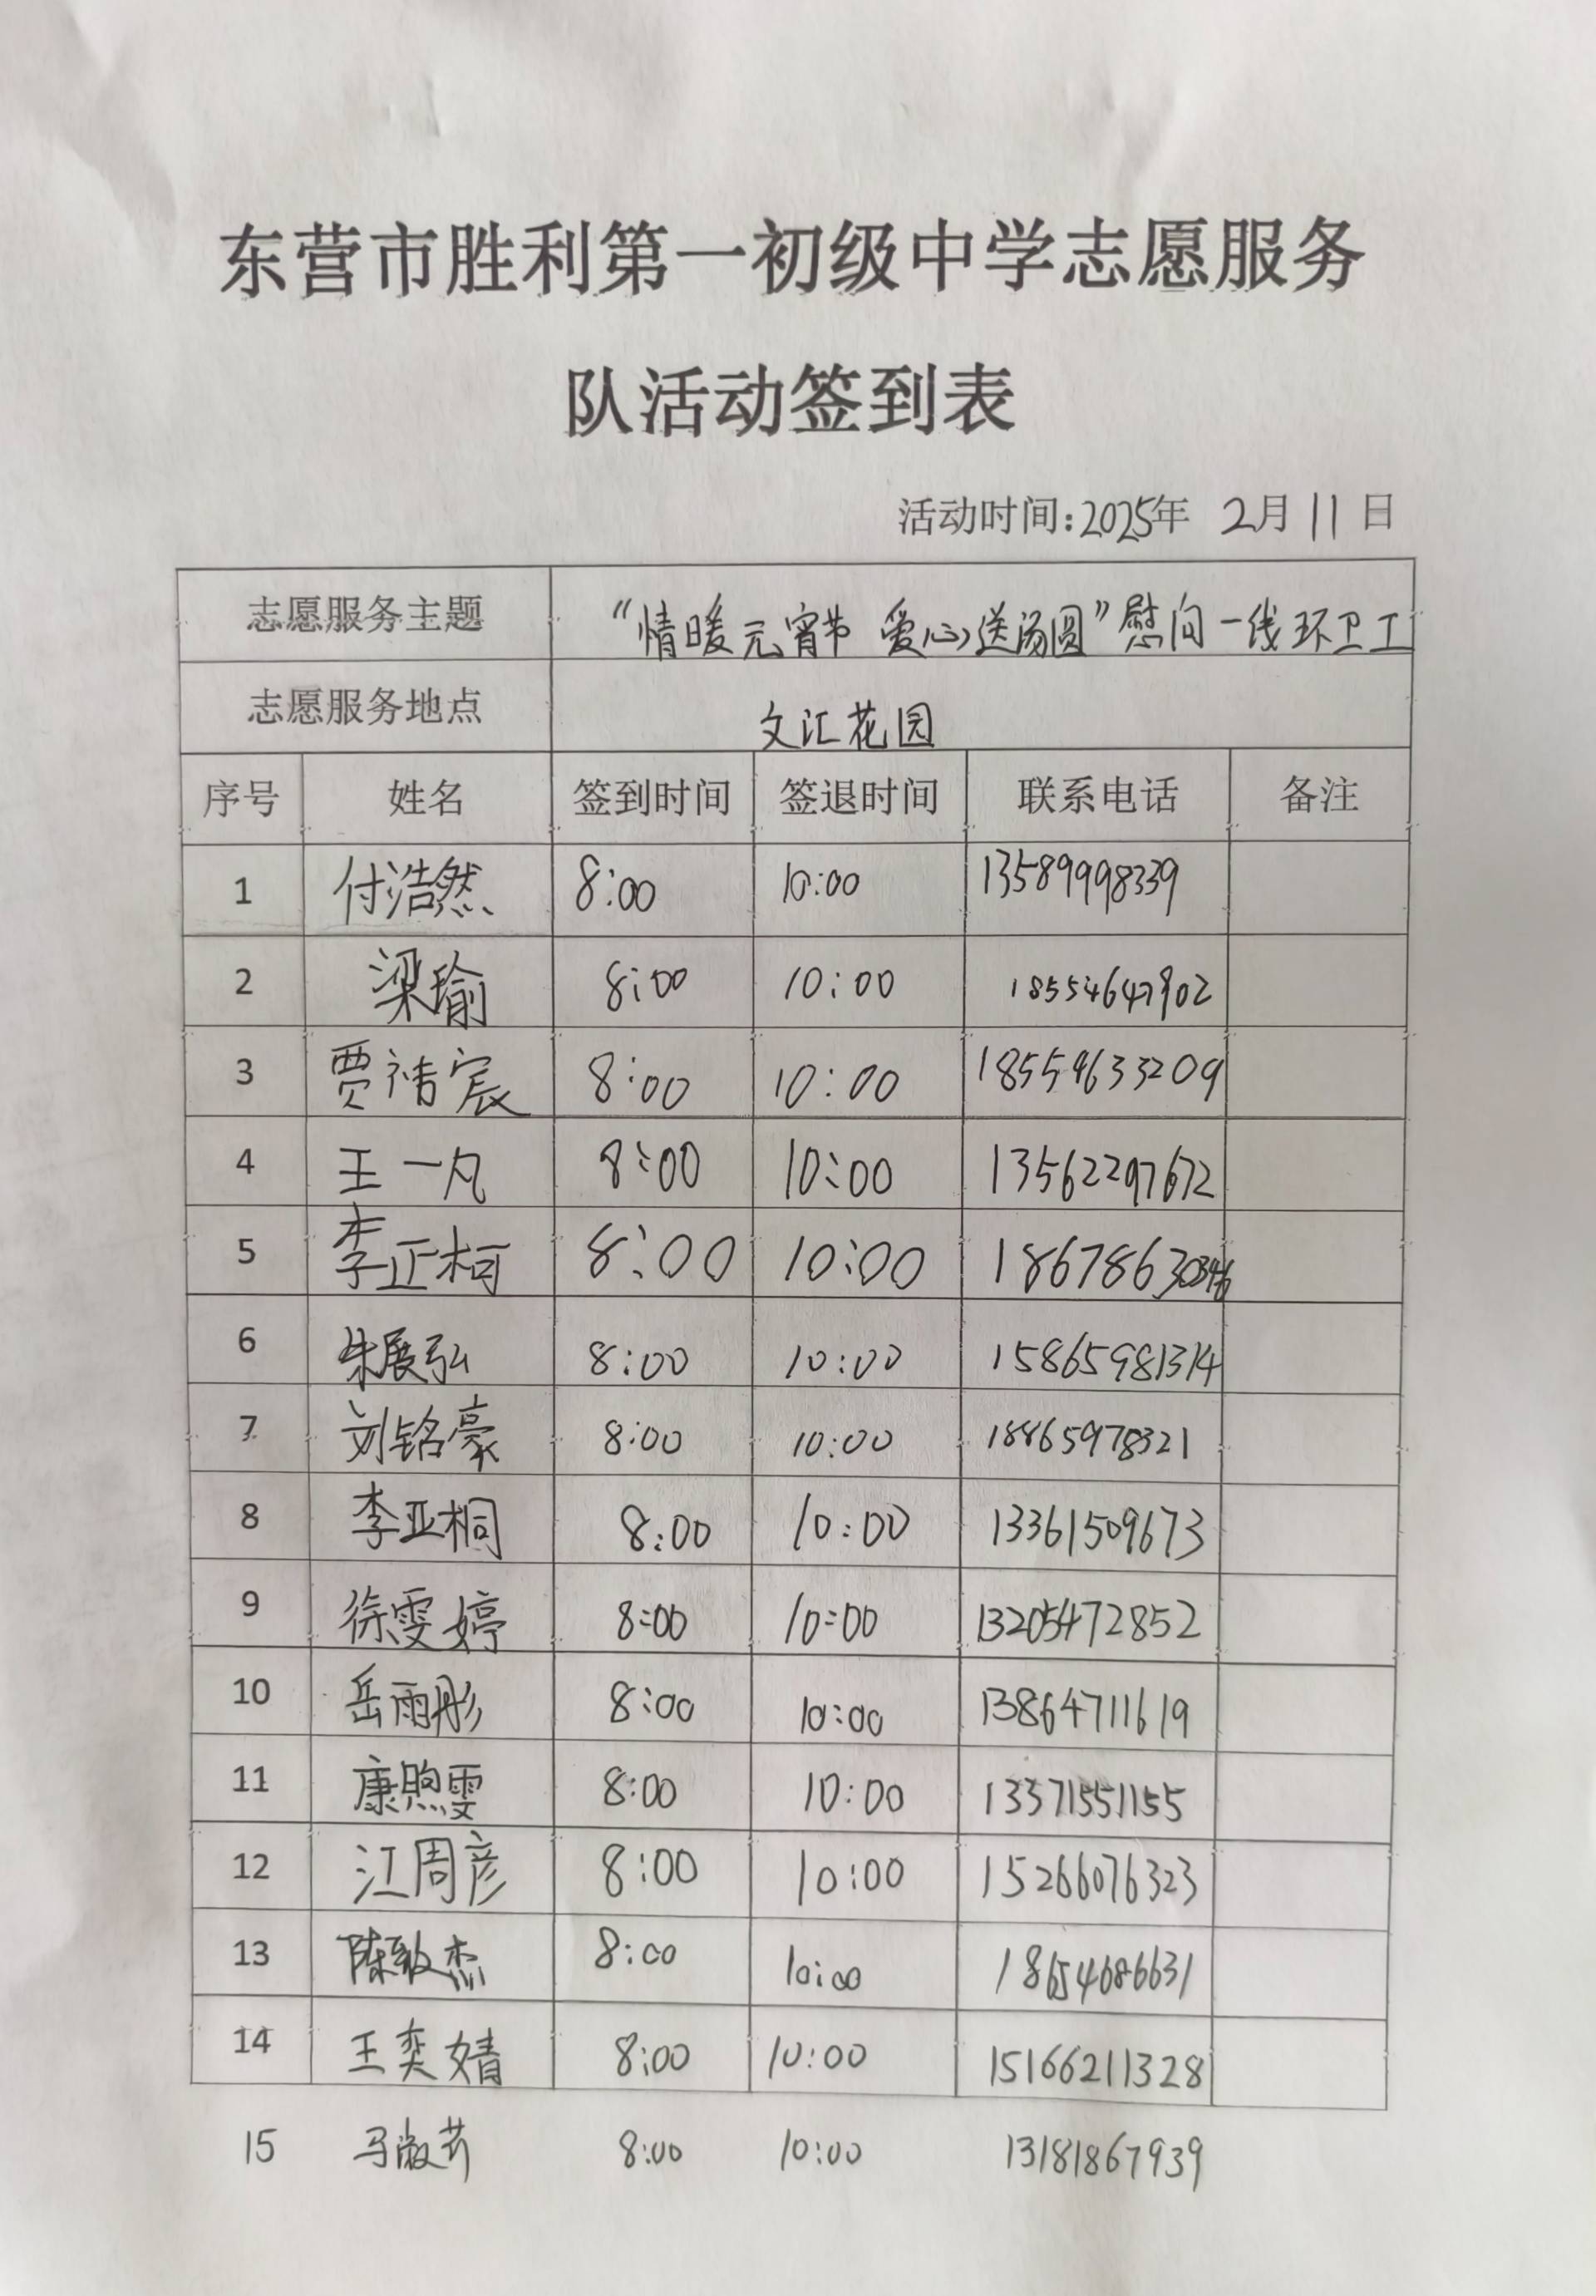 东营市胜利第一初级中学志愿服务
队活动签到表
活动时间:2025年 2月11日
志愿服务主题 “情暖元宵节 爱心送汤圆”慰问一线环卫工
志愿服务地点 文汇花园
序号 姓名 签到时间 签退时间 联系电话 备注
1 付浩然 8:00 10:00 13589998339
2 梁瑜 8:00 10:00 18554647902
3 贾靖宸 8:00 10:00 18554633209
4 王一凡 8:00 10:00 13562297672
5 李正柯 8:00 10:00
6 朱展弘 8:00 10:00 15865981314
7 刘铭豪 8:00 10:00 18865978321
8 李亚桐 8:00 10:00 13361509673
9 徐雯婷 8:00 10:00 13205472852
10 岳雨彤 8:00 10:00 13864711619
11 康煦雯 8:00 10:00 13371551155
12 江周彦 8:00 10:00 15266076323
13 陈致杰 8:00 10:00 18654686631
14 王奕婧 8:00 10:00 15166211328
15 8:00 10:00 13181867939